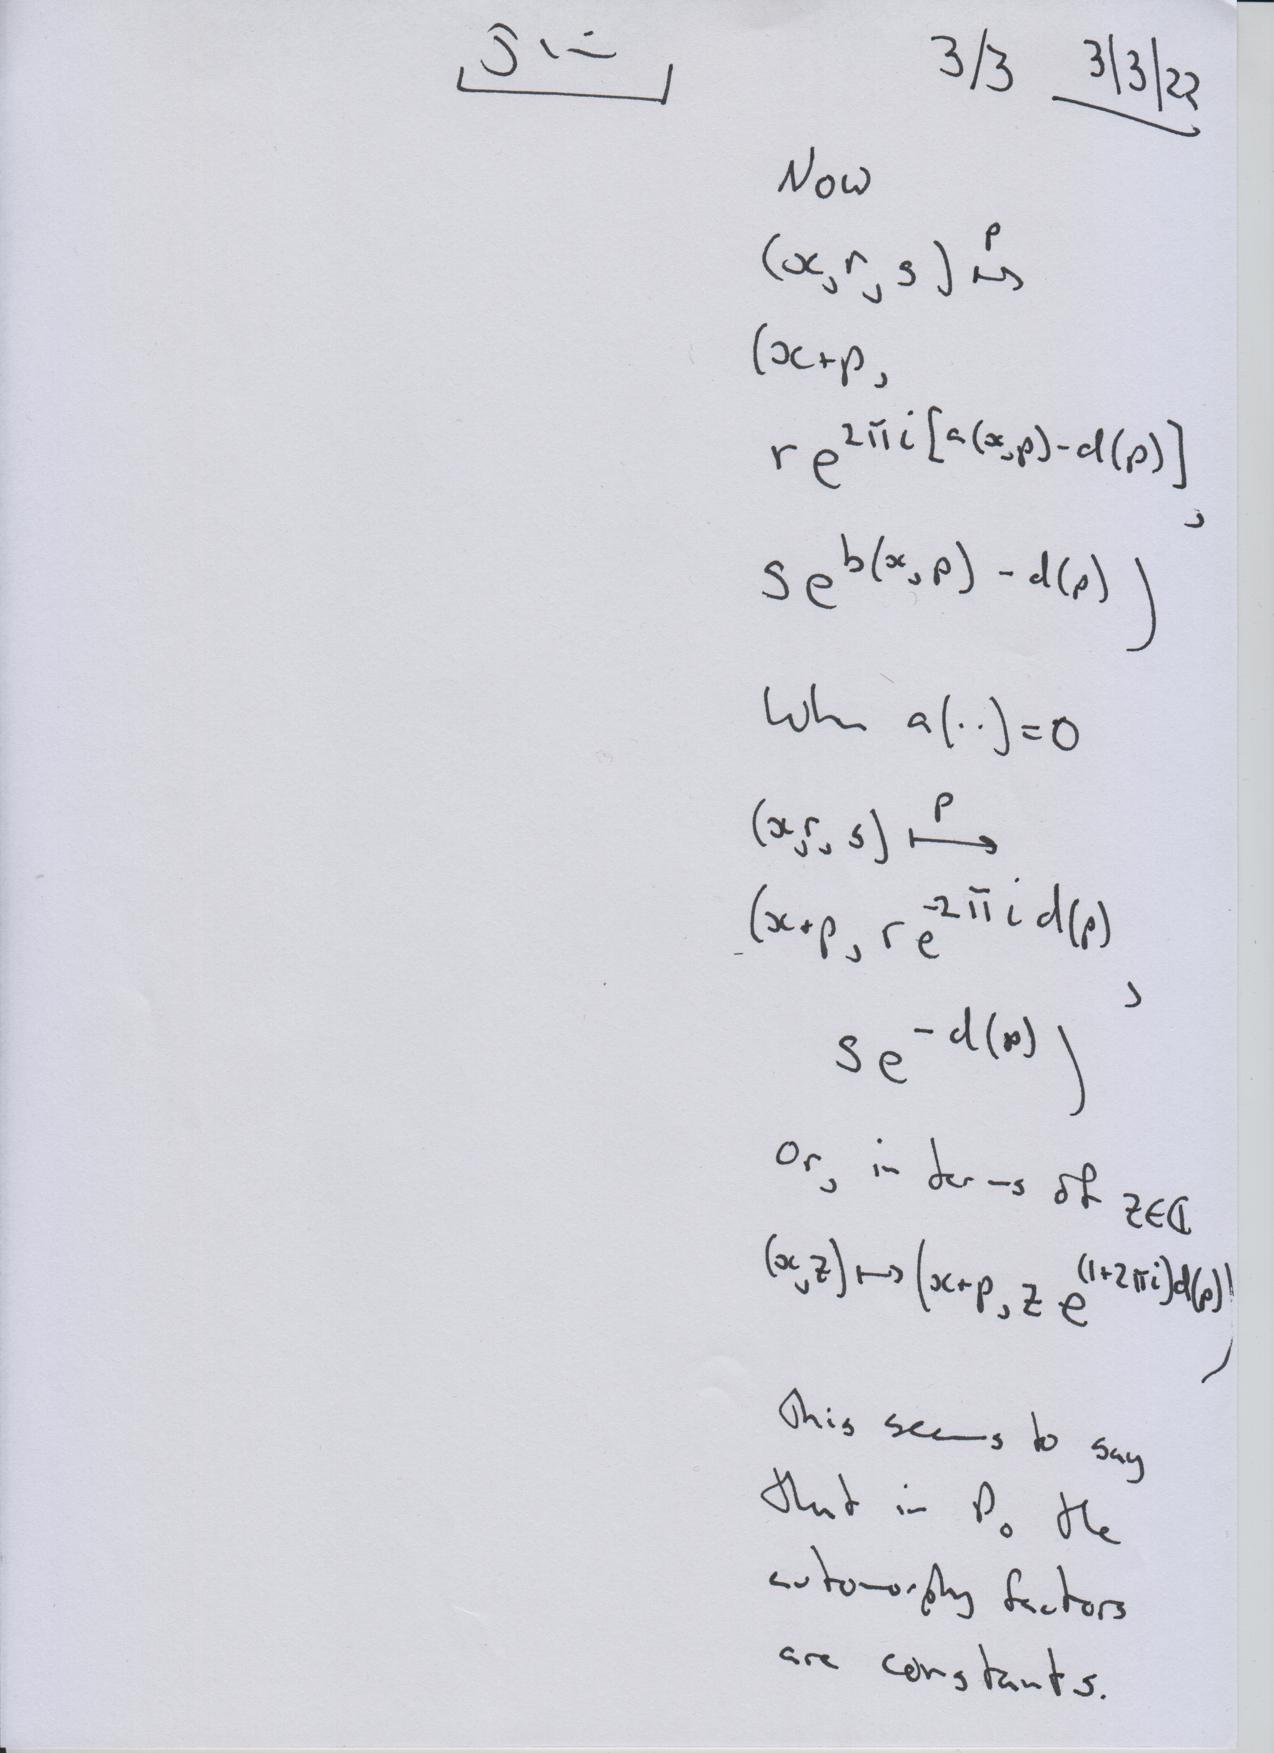 3/3 3/3/22
Now
(x, r, s) ↦^p
(x+p,
r e^{2πi[a(x,p)-d(p)]},
s e^{b(x,p) - d(p)})
When a(··)=0
(x, r, s) ↦^p
(x+p, r e^{-2πi d(p)},
s e^{-d(p)})
Or, in terms of z∈ℂ
(x,z) ↦ (x+p, z e^{(1+2πi)d(p)})
This seems to say
that in P₀ the
automorphy factors
are constants.